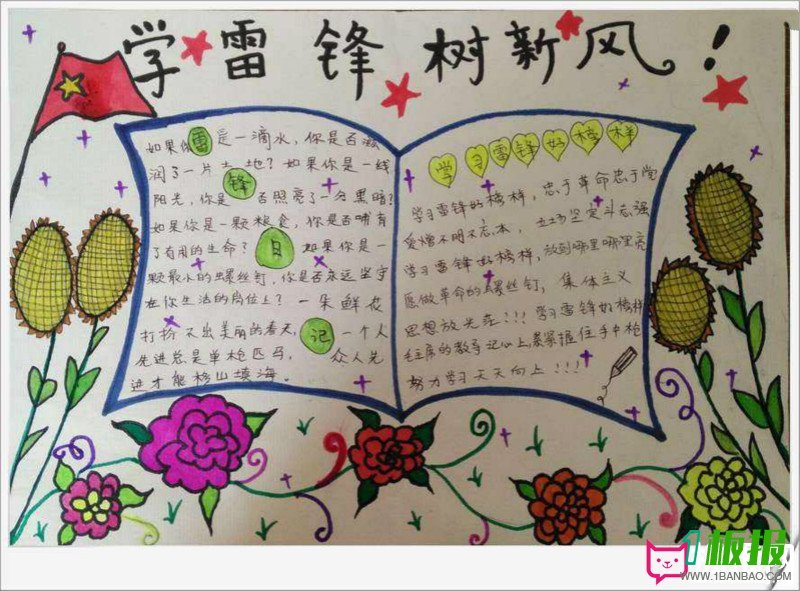 学雷锋树新风！
如果你雷是一滴水，你是否滋
润了一片土地？如果你是一线
阳光，你是锋否照亮了一分黑暗？
如果你是一颗粮食，你是否哺育
了有用的生命？日如果你是一
颗最小的螺丝钉，你是否永远坚守
在你生活的岗位上？一朵鲜花
打扮不出美丽的春天，记一个人
先进总是单枪匹马，众人先
进才能移山填海。
学习雷锋好榜样
学习雷锋好榜样，忠于革命忠于党
爱憎不明不忘本，立场坚定斗志强
学习雷锋好榜样，放到哪里哪里亮
愿做革命的螺丝钉，集体主义
思想放光芒！！！学习雷锋好榜样
毛主席的教导记心上，紧紧握住手中枪
努力学习天天向上！！！
1板报
WWW.1BANBAO.COM